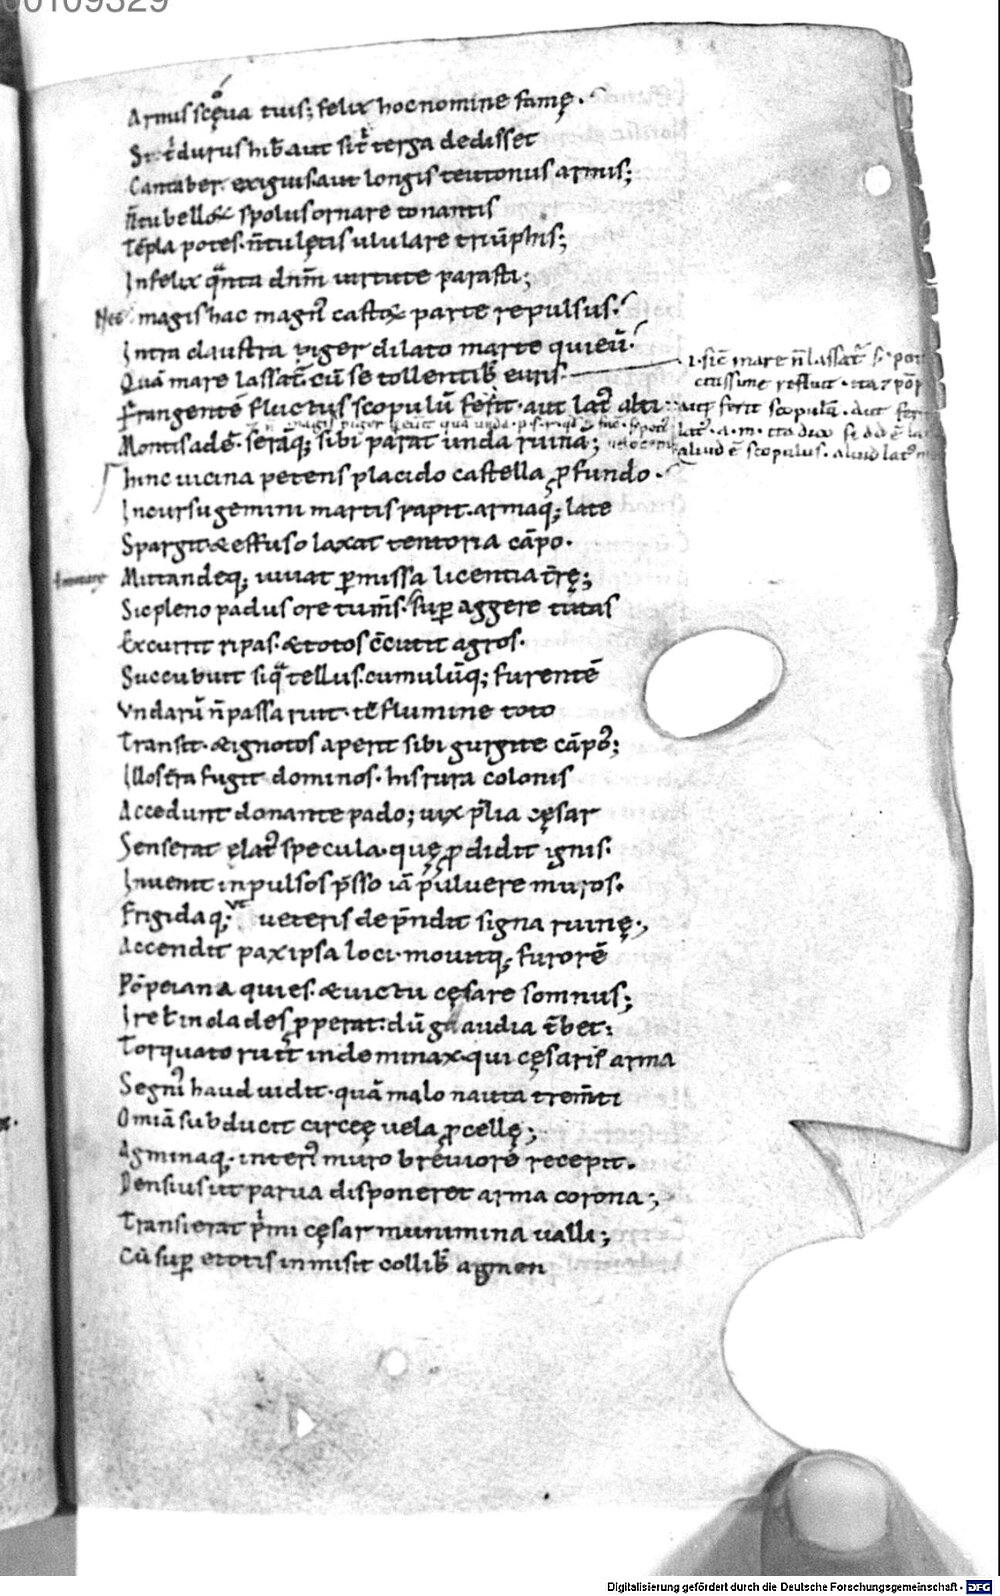 00109329
Armis scęva tuis; felix hoc nomine famę.
Si t̄ durus hib̄ aut si t̄ terga dedisset
Cantaber exiguis. aut longis teutonus armis;
n̄ tu bellorꝝ spoliis ornare tonantis
Tēpla potes. n̄ tu lętis ululare triūphis;
Infelix q̄nta dn̄m virtute parasti;
Nec magis hac magnꝰ castrorꝝ parte repulsus.
Intra claustra piger dilato marte quieū.
Quā mare lassat̄. cū se tollentib; euris.
Frangentē fluctus scopulū ferit. aut latꝰ alti
Montis adē. seraq; sibi parat unda ruinā;
Hinc vicina petens placido castella ꝓfundo.
Incursu gemini martis rapit. armaq; late
Spargit. & effuso laxat tentoria cāpo.
Mutandeq; iuvat ꝑmissa licentia t̄rę;
Sic pleno padus ore tum̄s. suꝑ aggere tutas
Excurrit ripas. & totos c̄cutit agros.
Succubuit siq̄ tellus. cumulūq; furentē
Undarū n̄ passa ruit. t̄c flumine toto
Transit. & ignotos aperit sibi gurgite cāpos;
Illos t̄ra fugit dominos. his rura colonis
Accedunt donante pado; vix p̄lia cęsar
Senserat elatꝰ specula. quę ꝓdidit ignis.
Invenit inpulsos p̄sso iā pulvere muros.
Frigidaq; ut veteris dep̄ndit signa ruinę;
Accendit pax ipsa loci. movitq; furorē
Pōpeiana quies. & victu cęsare somnus;
Ire vel in clades ꝓperat. dū gaudia t̄bet.
Torquato ruit inde minax. qui cęsaris arma
Segniꝰ haud vidit. quā malo nauta trem̄ti
Omiā subducit circeę vela ꝓcellę;
Agminaq; interiꝰ muro breviore recepit.
Densius ut parva disponeret arma corona;
Transierat p̄mi cęsar munimina valli;
Cū suꝑ e totis inmisit collib; agmen
Digitalisierung gefördert durch die Deutsche Forschungsgemeinschaft - DFG